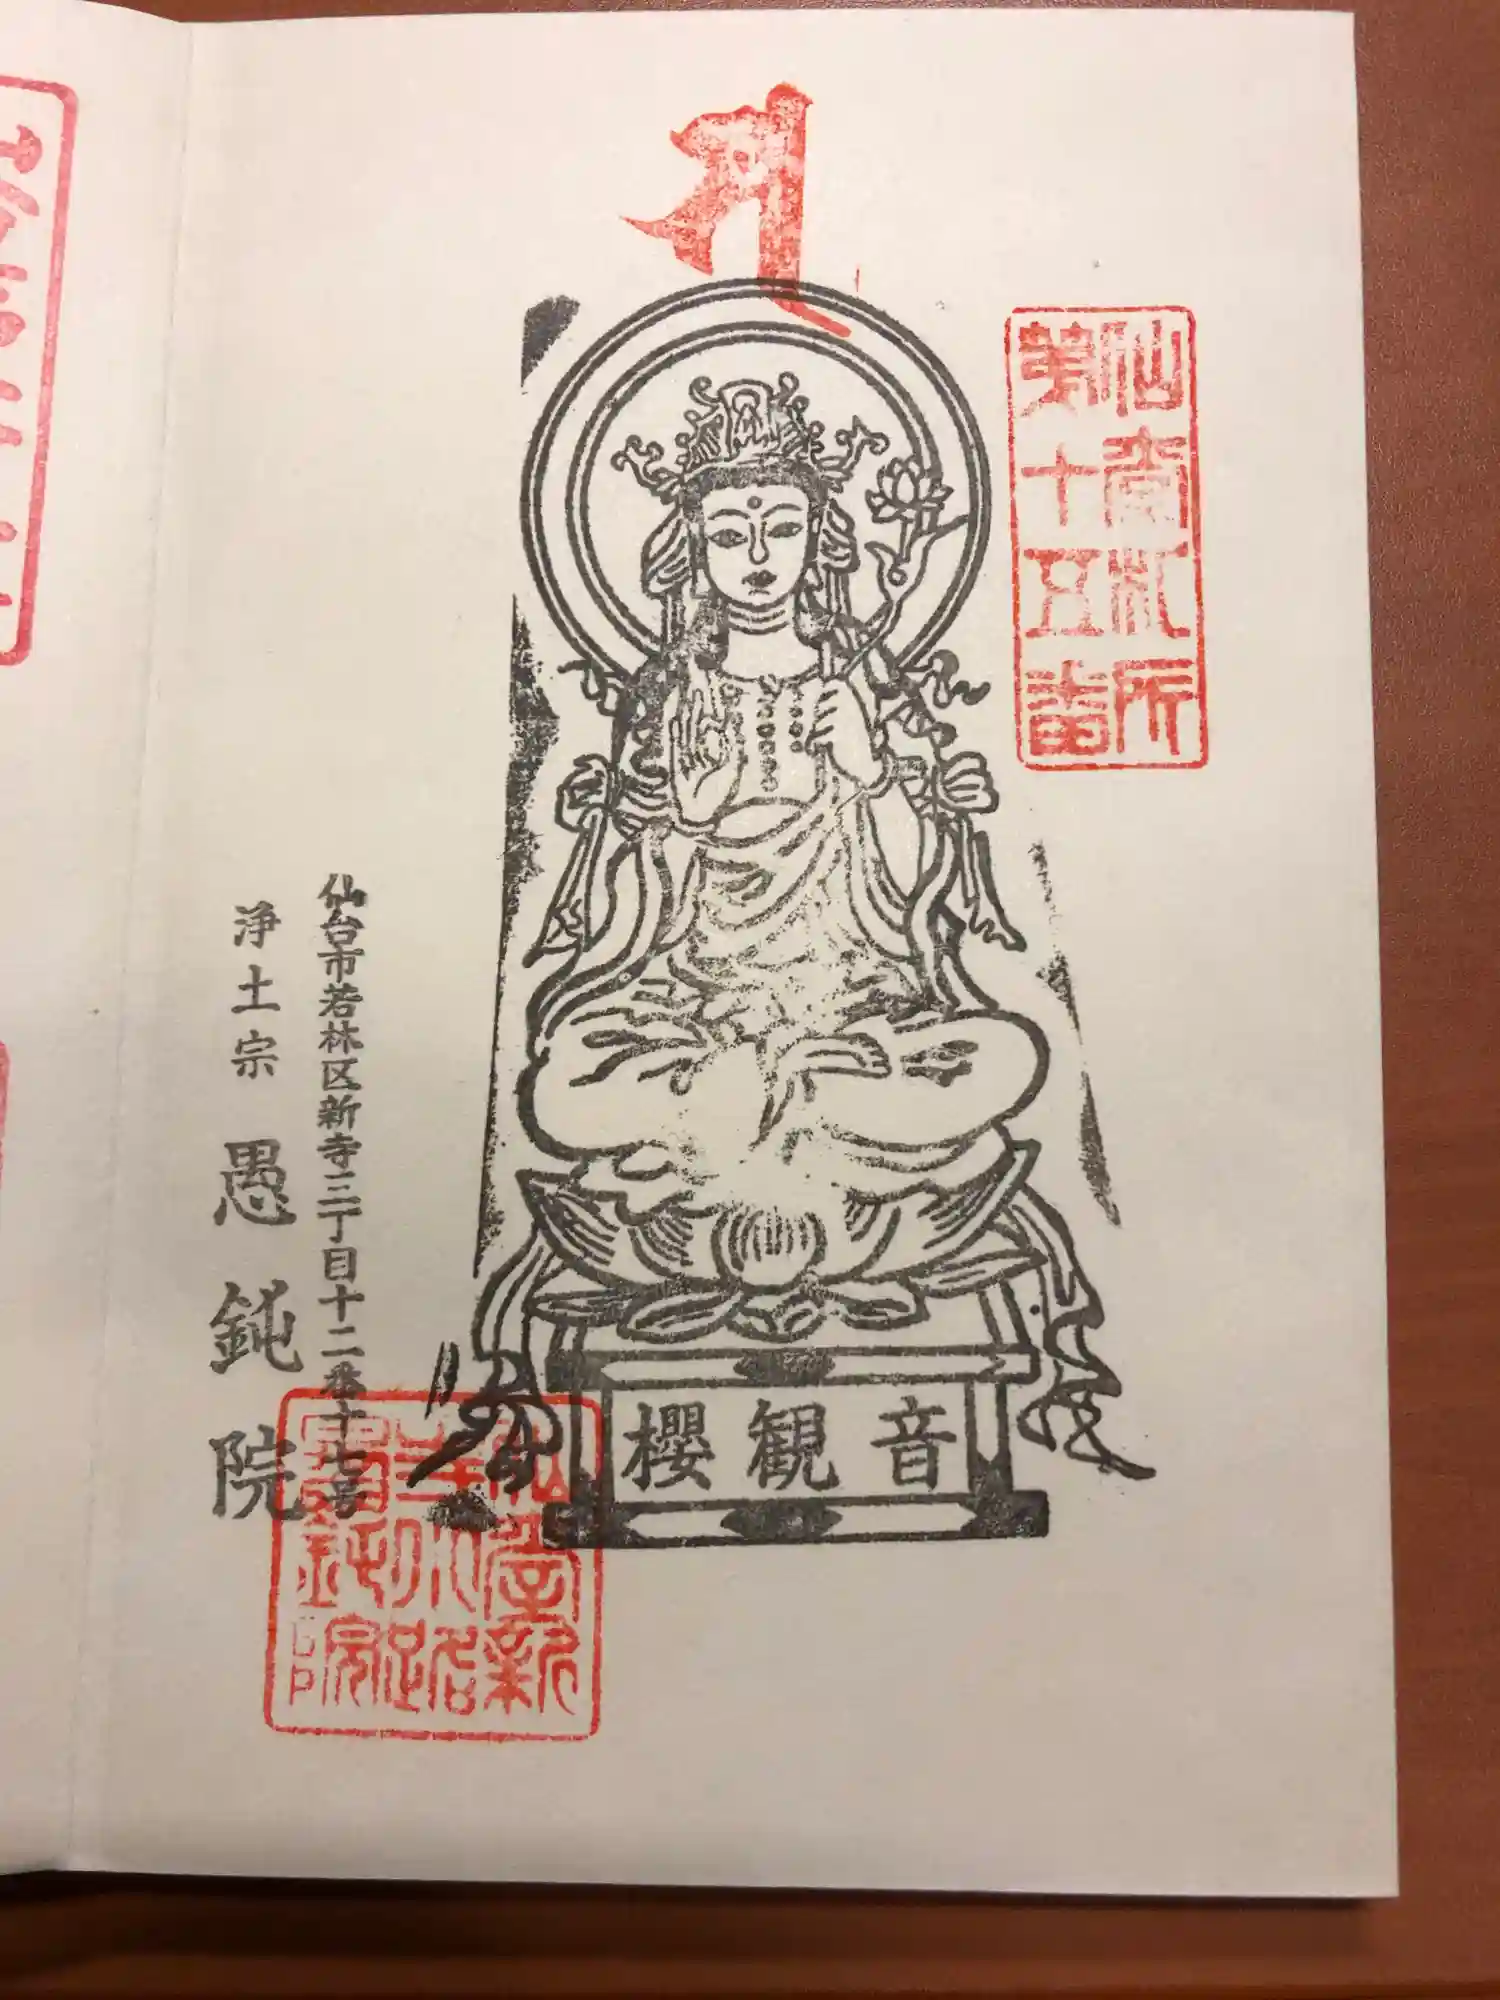 仙臺札所
第十五番
櫻観音
仙台市若林区新寺三丁目十二番十七号
浄土宗 愚鈍院
愚鈍院